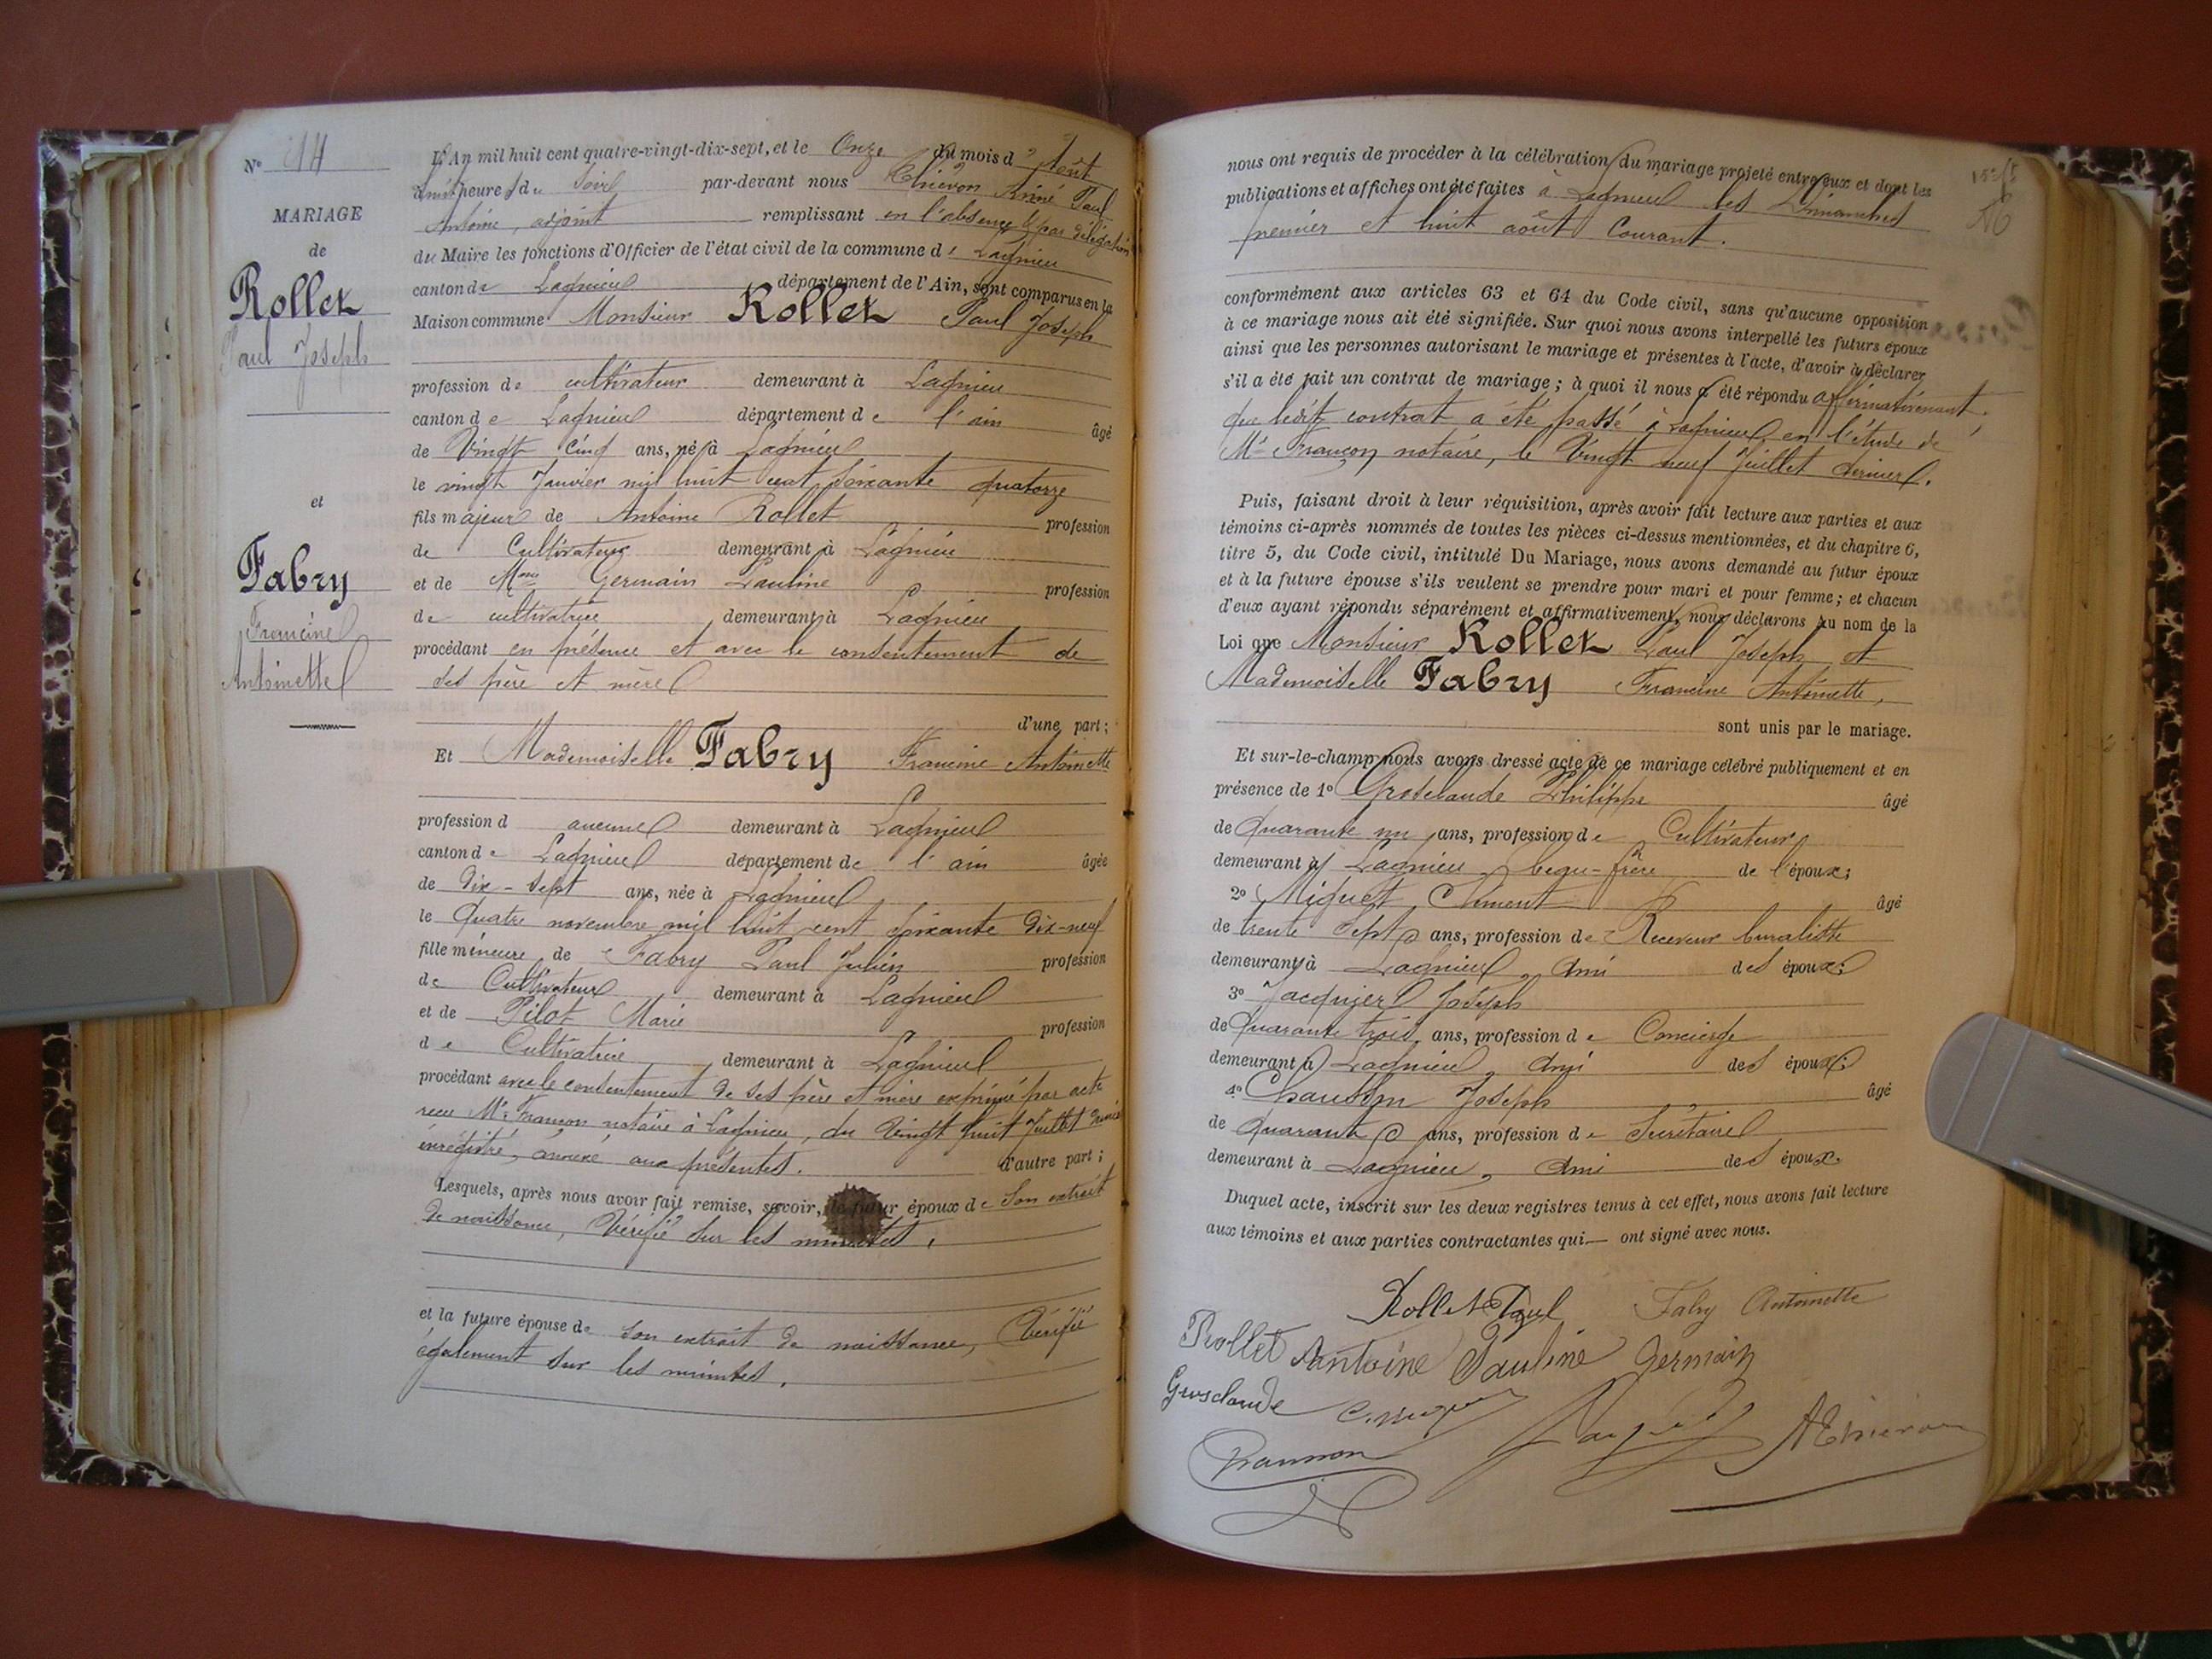 N° 14
MARIAGE
de
Rollet
Paul Joseph
et
Fabry
Francine
Antoinette
L'An mil huit cent quatre-vingt-dix-sept, et le Onze du mois d'Août
à huit heures du Soir par-devant nous Thiévon Aimé Paul
Antoine, adjoint remplissant en l'absence & par délégation
du Maire les fonctions d'Officier de l'état civil de la commune de Lagnieu
canton de Lagnieu département de l'Ain, sont comparus en la
Maison commune Monsieur Rollet Paul Joseph
profession de cultivateur demeurant à Lagnieu
canton de Lagnieu département de l'ain âgé
de Vingt Cinq ans, né à Lagnieu
le vingt Janvier mil huit cent soixante quatorze
fils majeur de Antoine Rollet profession
de Cultivateur demeurant à Lagnieu
et de Mme Germain Pauline profession
de cultivatrice demeurant à Lagnieu
procédant en présence et avec le consentement de
ses père et mère
d'une part;
Et Mademoiselle Fabry Francine Antoinette
profession d aucune demeurant à Lagnieu
canton de Lagnieu département de l'ain âgée
de Dix-sept ans, née à Lagnieu
le Quatre novembre mil huit cent soixante Dix-neuf
fille mineure de Fabry Paul Julien profession
de Cultivateur demeurant à Lagnieu
et de Pilot Marie profession
de Cultivatrice demeurant à Lagnieu
procédant avec le consentement de ses père et mère exprimé par acte
reçu Me Françon notaire à Lagnieu, du Vingt huit Juillet dernier
enregistré, annexé aux présentes. d'autre part;
Lesquels, après nous avoir fait remise, savoir, le futur époux de Son extrait
de naissance, Vérifié sur les minutes.
et la future épouse de son extrait de naissance, Vérifié
également sur les minutes.
nous ont requis de procéder à la célébration du mariage projeté entre eux et dont les
publications et affiches ont été faites à Lagnieu les Dimanches
premier et huit août Courant.
conformément aux articles 63 et 64 du Code civil, sans qu'aucune opposition
à ce mariage nous ait été signifiée. Sur quoi nous avons interpellé les futurs époux
ainsi que les personnes autorisant le mariage et présentes à l'acte, d'avoir à déclarer
s'il a été fait un contrat de mariage; à quoi il nous a été répondu affirmativement,
que ledit contrat a été passé à Lagnieu en l'étude de
Me Françon notaire, le Vingt neuf Juillet dernier.
Puis, faisant droit à leur réquisition, après avoir fait lecture aux parties et aux
témoins ci-après nommés de toutes les pièces ci-dessus mentionnées, et du chapitre 6,
titre 5, du Code civil, intitulé Du Mariage, nous avons demandé au futur époux
et à la future épouse s'ils veulent se prendre pour mari et pour femme; et chacun
d'eux ayant répondu séparément et affirmativement, nous déclarons au nom de la
Loi que Monsieur Rollet Paul Joseph et
Mademoiselle Fabry Francine Antoinette,
sont unis par le mariage.
Et sur-le-champ nous avons dressé acte de ce mariage célébré publiquement et en
présence de 1° Grosclaude Philippe âgé
de Quarante un ans, profession de Cultivateur
demeurant à Lagnieu, beau-frère de l'époux;
2° Miguet Clément âgé
de trente Sept ans, profession de Receveur buraliste
demeurant à Lagnieu, Ami des époux;
3° Jacquier Joseph
de Quarante trois ans, profession de Concierge
demeurant à Lagnieu, Ami des époux;
4° Joseph âgé
de Quarante ans, profession de Secrétaire
demeurant à Lagnieu, Ami des époux.
Duquel acte, inscrit sur les deux registres tenus à cet effet, nous avons fait lecture
aux témoins et aux parties contractantes qui — ont signé avec nous.
Rollet Paul Fabry Antoinette
Rollet Antoine Pauline Germain
Grosclaude C. Miguet
AThiévon